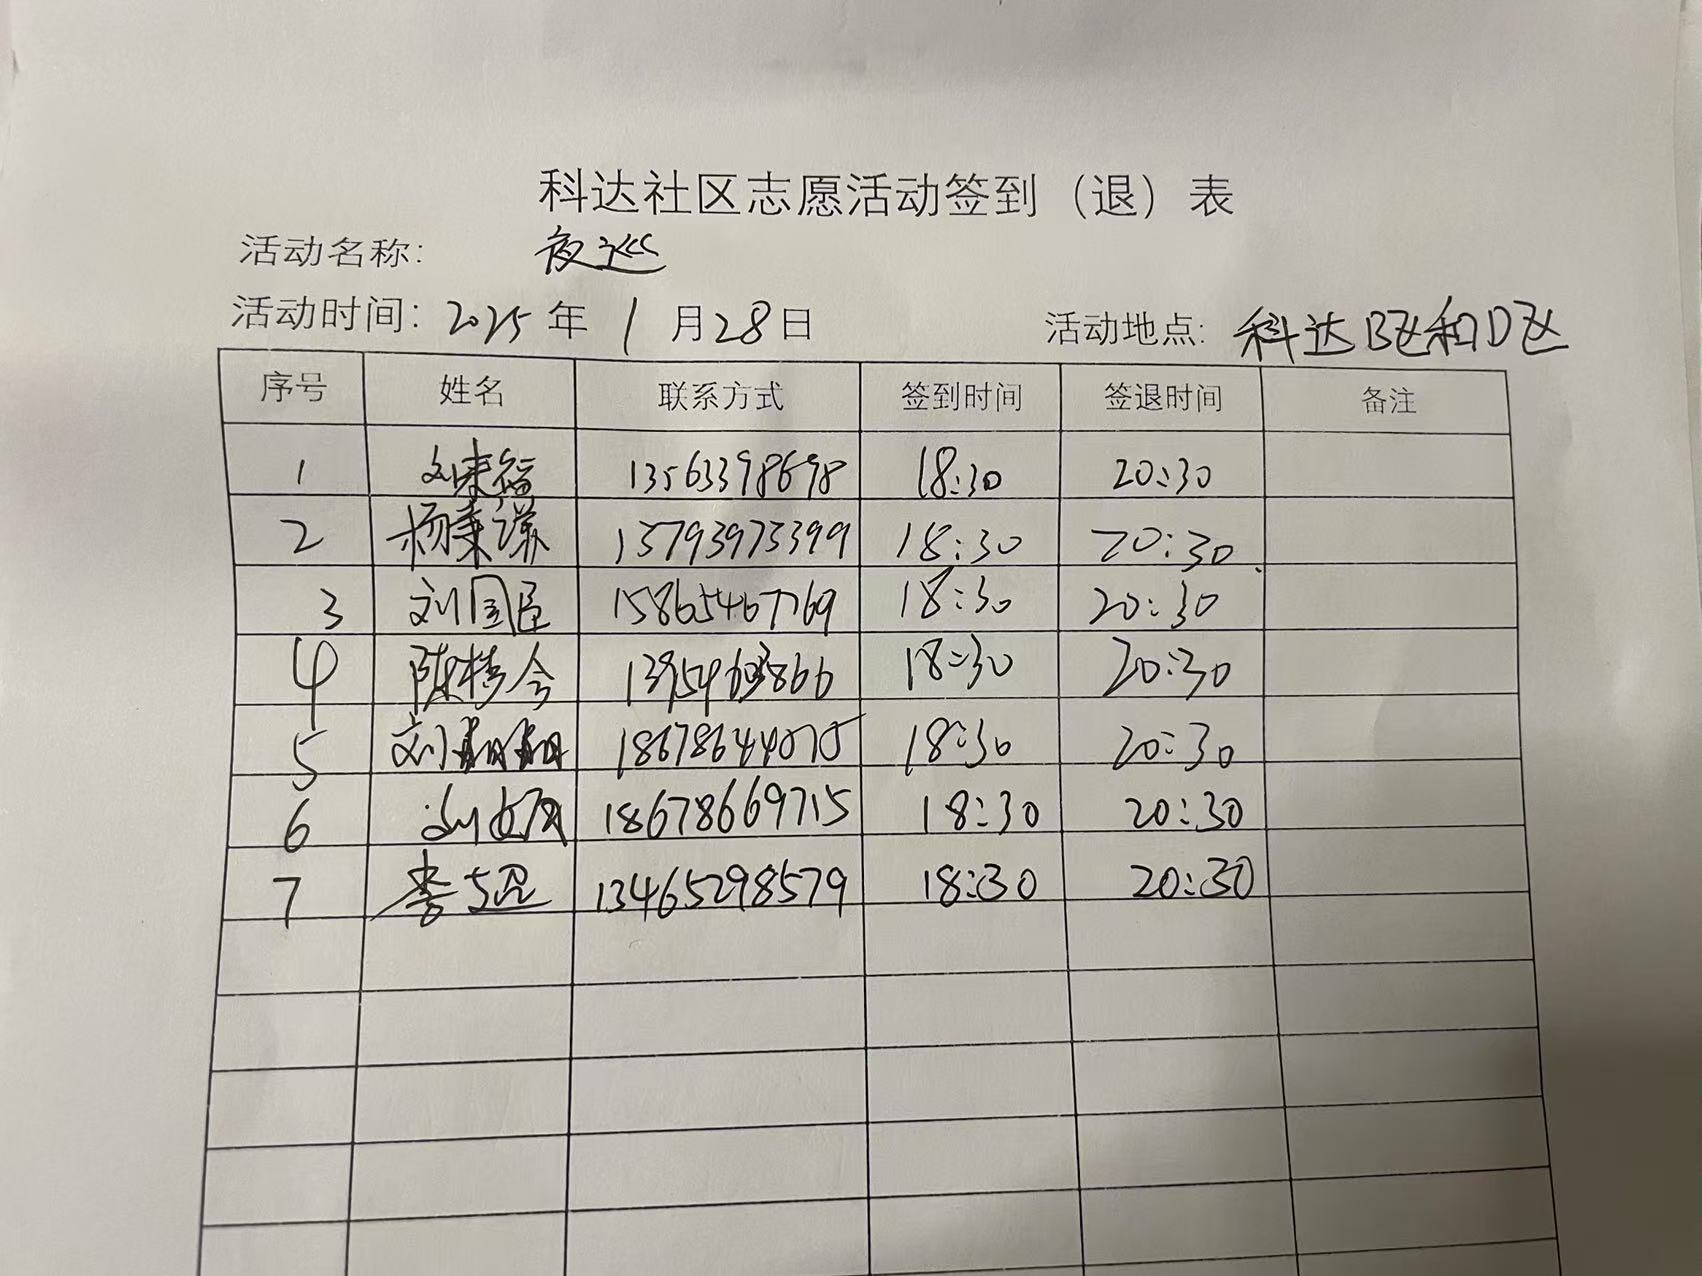 科达社区志愿活动签到（退）表
活动名称： 夜巡
活动时间：2025年1月28日 活动地点：科达B区和D区
序号 姓名 联系方式 签到时间 签退时间 备注
1 刘来福 13563398698 18:30 20:30
2 杨秉谦 18:30 20:30
3 刘国臣 15865467769 18:30 20:30
4 18:30 20:30
5 刘 18678644075 18:30 20:30
6 刘 18678669715 18:30 20:30
7 李 13465298579 18:30 20:30